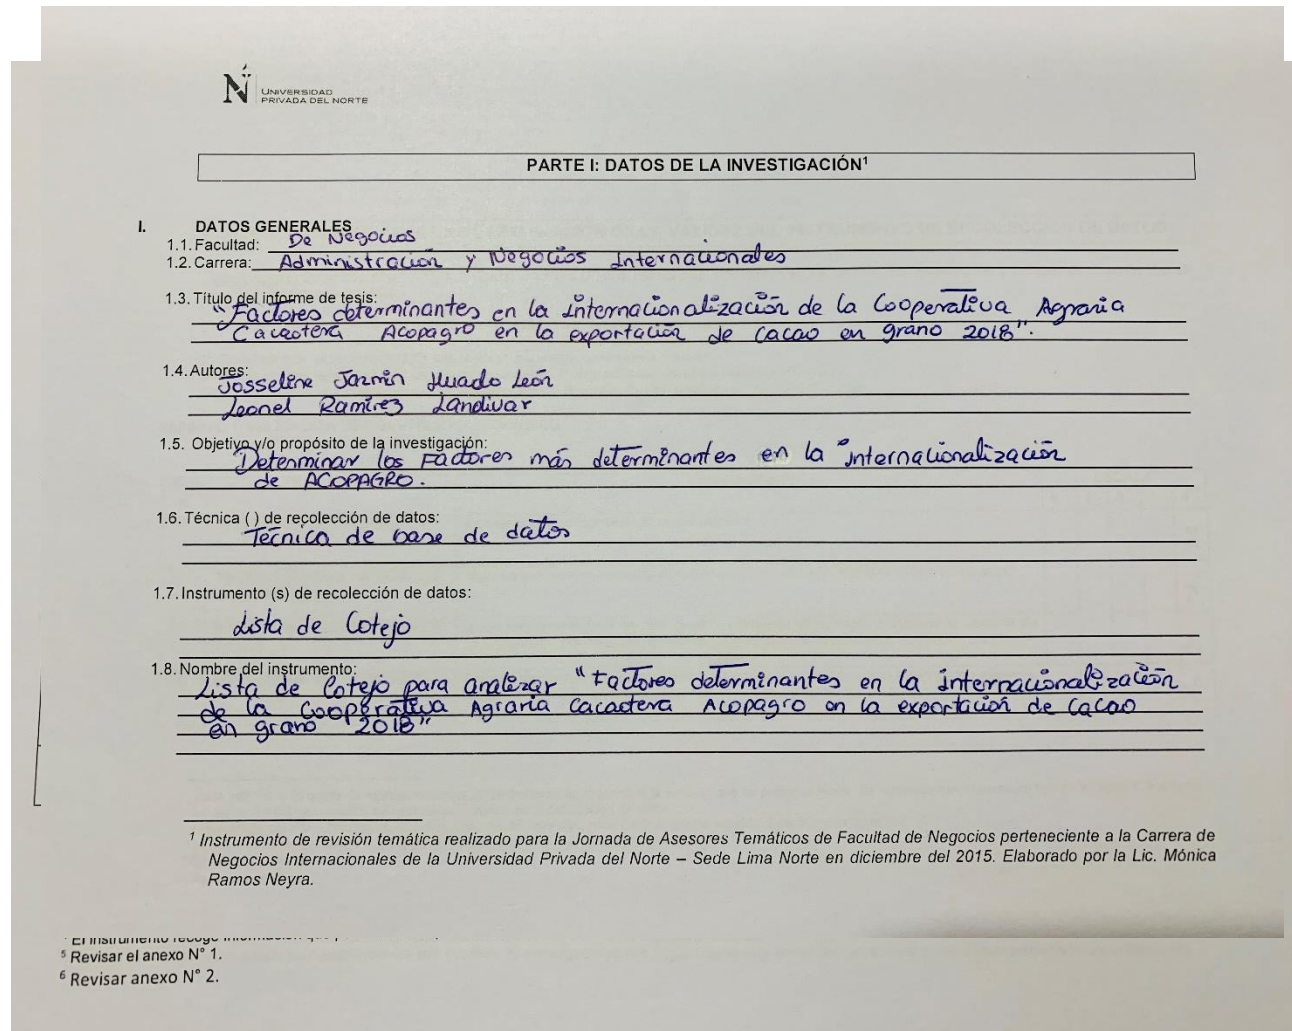 UNIVERSIDAD
PRIVADA DEL NORTE
PARTE I: DATOS DE LA INVESTIGACIÓN¹
I. DATOS GENERALES
1.1. Facultad: De Negocios
1.2. Carrera: Administración y Negocios Internacionales
1.3. Título del informe de tesis:
"Factores determinantes en la internacionalización de la Cooperativa Agraria
Cacaotera Acopagro en la exportación de cacao en grano 2018".
1.4. Autores:
Josseline Jazmin Huado León
Leonel Ramírez Landivar
1.5. Objetivo y/o propósito de la investigación:
Determinar los Factores más determinantes en la internacionalización
de ACOPAGRO.
1.6. Técnica ( ) de recolección de datos:
Técnica de base de datos
1.7. Instrumento (s) de recolección de datos:
Lista de Cotejo
1.8. Nombre del instrumento:
Lista de Cotejo para analizar "Factores determinantes en la internacionalización
de la Cooperativa Agraria Cacaotera Acopagro en la exportación de cacao
en grano 2018"
¹ Instrumento de revisión temática realizado para la Jornada de Asesores Temáticos de Facultad de Negocios perteneciente a la Carrera de
Negocios Internacionales de la Universidad Privada del Norte – Sede Lima Norte en diciembre del 2015. Elaborado por la Lic. Mónica
Ramos Neyra.
⁵ Revisar el anexo N° 1.
⁶ Revisar anexo N° 2.